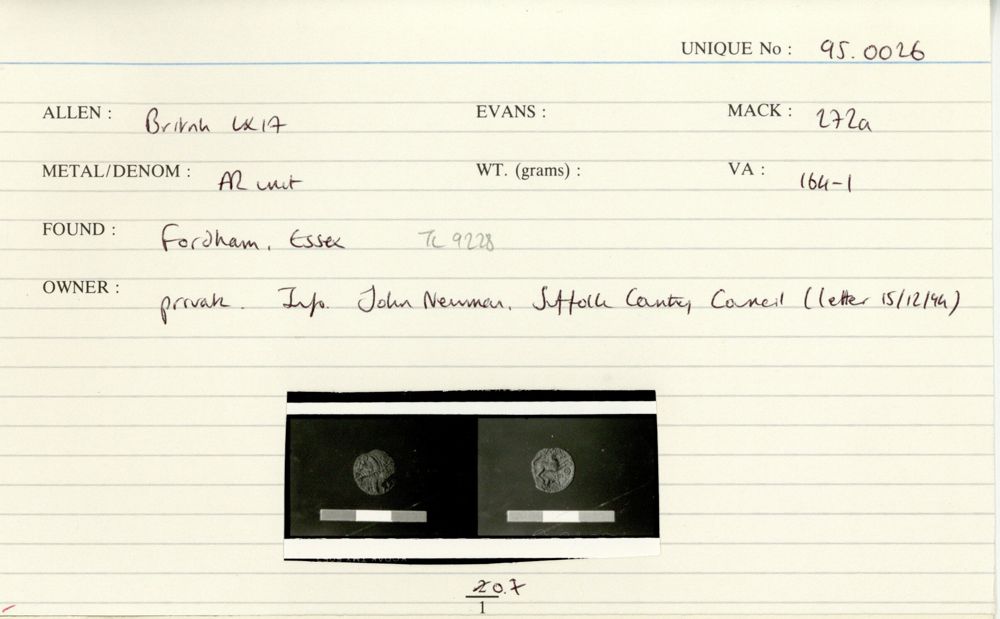 UNIQUE No : 95.0026
ALLEN : British LX17 EVANS : MACK : 272a
METAL/DENOM : AR unit WT. (grams) : VA : 164-1
FOUND : Fordham, Essex TL 9228
OWNER : private. Info. John Newman, Suffolk County Council (letter 15/12/94)
20.7
1